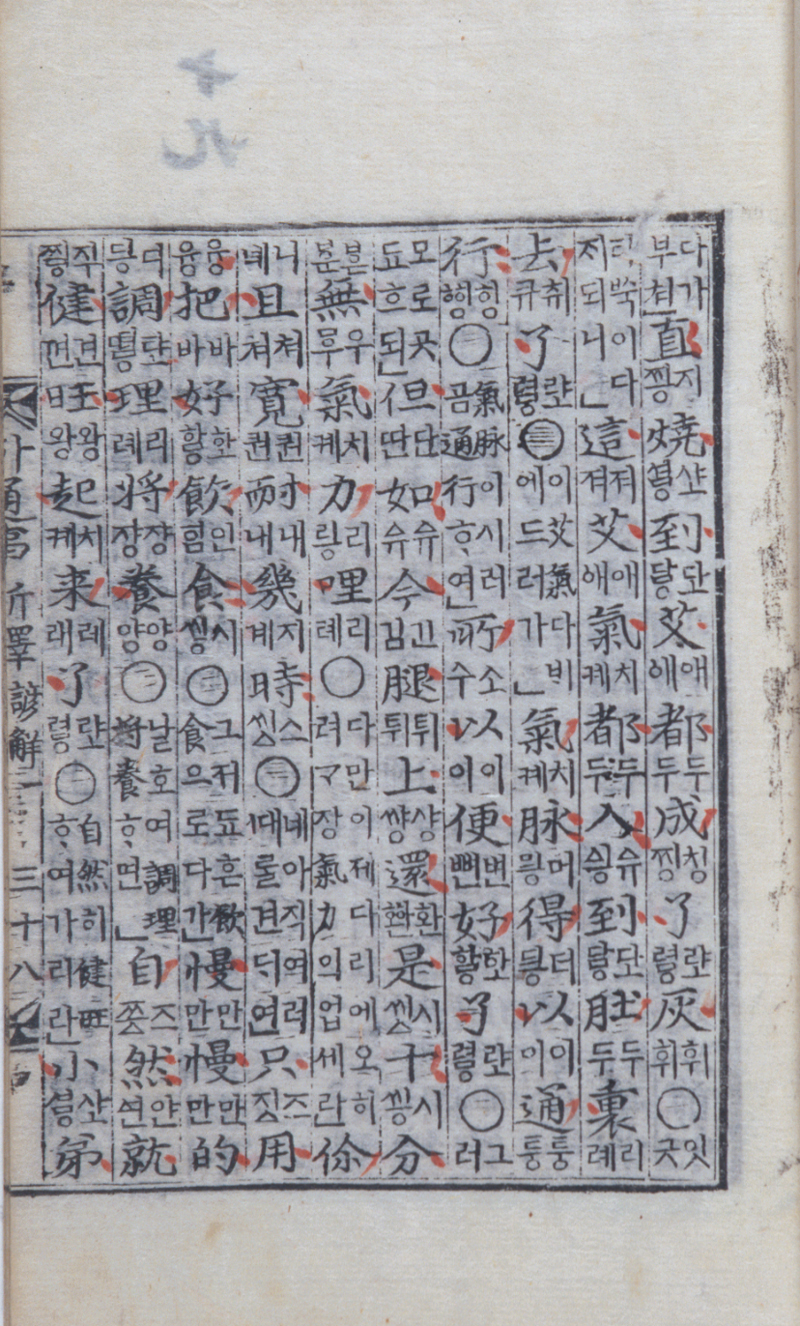 다가부쳐」直찡지燒샤到단艾애애都두두成찡칭了랸灰휘휘○잇긋
리쑥이다지되니」這져져艾애애氣켸치都두두入슈到단肚두두裏례리
去큐취了랸○이艾氣다비에드러가」氣켸치脉믱머得듷더以이이通퉁퉁
行힝힝○氣脉이시러곰通行ᄒᆞ여」所수소以이이便뼌변好화了랸○그러
모로곳됴흐되」但딴단如슈슈今김긴腿튀튀上썅샹還환환是씽시十씽시分
분분無무우氣켸치力링리哩례리○다만이제다리에오히려마장氣力의업세란你
니녜且쳐쳐寬퀀퀀耐내내幾계지時씽스○네아직여러대를견디연只징즈用
융융把바바好화飮힘인食씽시○그저됴흔飮食으로다간」慢만만慢만만的
딍디調땽탼理례리將쟝쟝養양양○날호여調理將養ᄒᆞ면」自쯩즈然연얀就
찡직健껀견旺왕왕起켸치来래레了랸○自然히健旺ᄒᆞ여가리라」小샨弟
朴通事新釋諺解二 三十八
十九